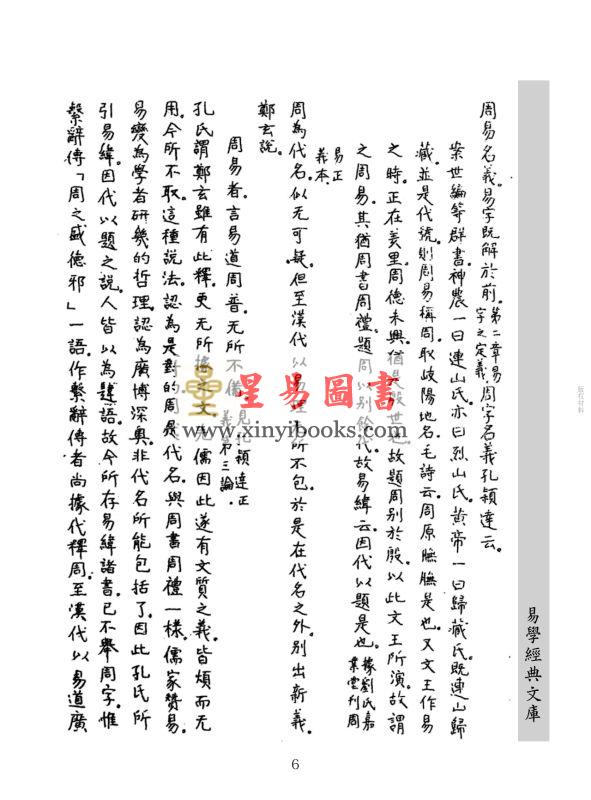 周易名義。易字既解於前。第二章易字之定義。周字名義。孔穎達云。
案世編等群書。神農一曰連山氏。亦曰烈山氏。黃帝一曰歸藏氏。既連山歸
藏並是代號。則周易稱周。取岐陽地名。毛詩云。周原膴膴是也。又文王作易
之時。正在羑里。周德未興。猶是殷世也。故題周別於殷。以此文王所演。故謂
之周易。其猶周書周禮。題周以別餘代。故易緯云。因代以題是也。據劉氏嘉業堂刊周
易正義本。
周為代名。似无可疑。但至漢代以易理无所不包。於是在代名之外。別出新義。
鄭玄說。
周易者。言易道周普。无所不備。見孔穎達正義第三論。
孔氏謂鄭玄雖有此釋。更无所據之文。先儒因此遂有文質之義。皆煩而无
用。今所不取。這種說法。認為是對的。周是代名。與周書周禮一樣。儒家贊易。
易變為學者研幾的哲理。認為廣博深奧。非代名所能包括了。因此孔氏所
引易緯。因代以題之說。人皆以為讖語。故今所存易緯諸書。已不舉周字。惟
繫辭傳「周之盛德邪」一語。作繫辭傳者尚據代釋周。至漢代以易道廣
星易圖書
www.xinyibooks.com
易學經典文庫
版權材料
6